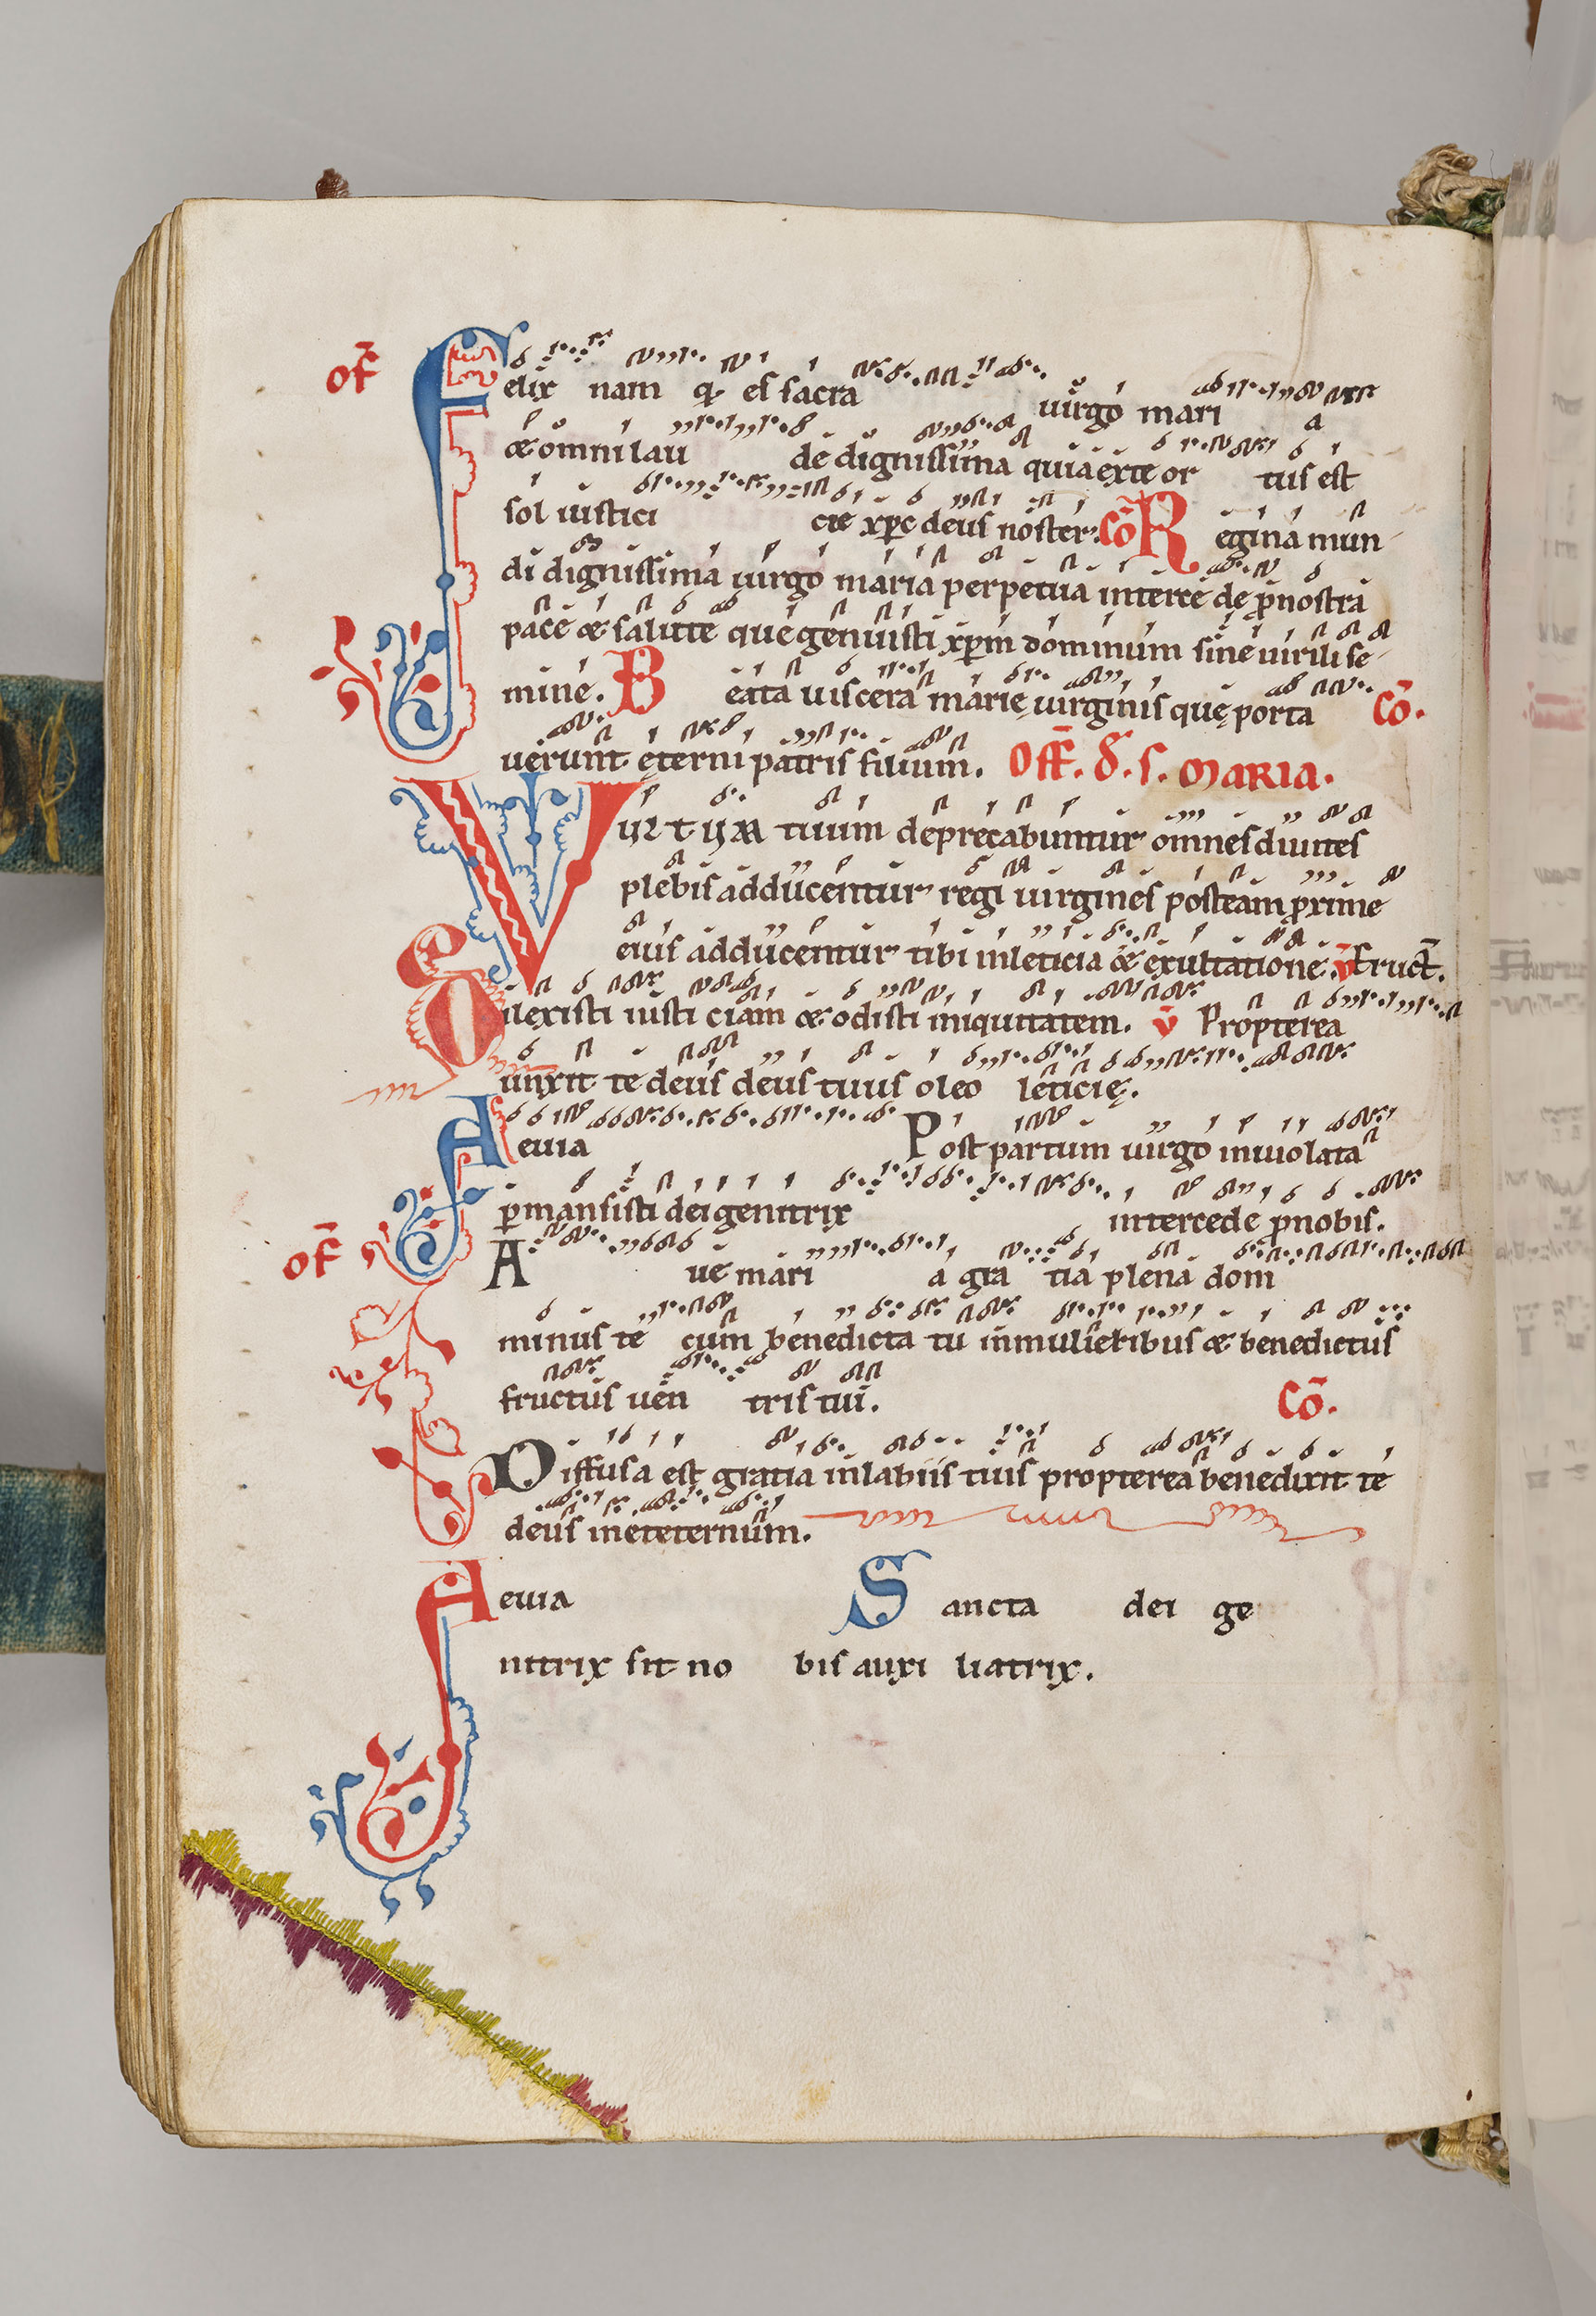 of̄ Felix nam q es sacra uirgo mari
æ omni lau de dignissima quia ex te or tus est
sol iusticicię xp̄c deus noster. Cō Regina mun
di dignissima uirgo maria perpetua interce de p̄ nostra
pace æ salute que genuisti xp̄m dominum sine uirili se
mine. Beata uiscera marię uirginis quę porta Cō.
uerunt ęterni patris filium. Off. d. s. MARIA.
Vultum tuum deprecabuntur omnes diuites
plebis adducentur regi uirgines post eam proxime
eius adducentur tibi in leticia æ exultatione. v̄ Eruct̄.
Dilexisti iusticiam æ odisti iniquitatem. v̄ Propterea
unxit te deus deus tuus oleo leticię.
Aeuia Post partum uirgo inuiolata
ꝑmansisti dei genitrix intercede ꝓ nobis.
of̄ A ue mari a gra tia plena dom
minus te cum benedicta tu in mulieribus æ benedictus
fructus uen tris tui. Cō.
Diffusa est gratia in labiis tuis propterea benedixit te
deus in eteternum.
Aeuia Sancta dei ge
nitrix sit no bis auxi liatrix.